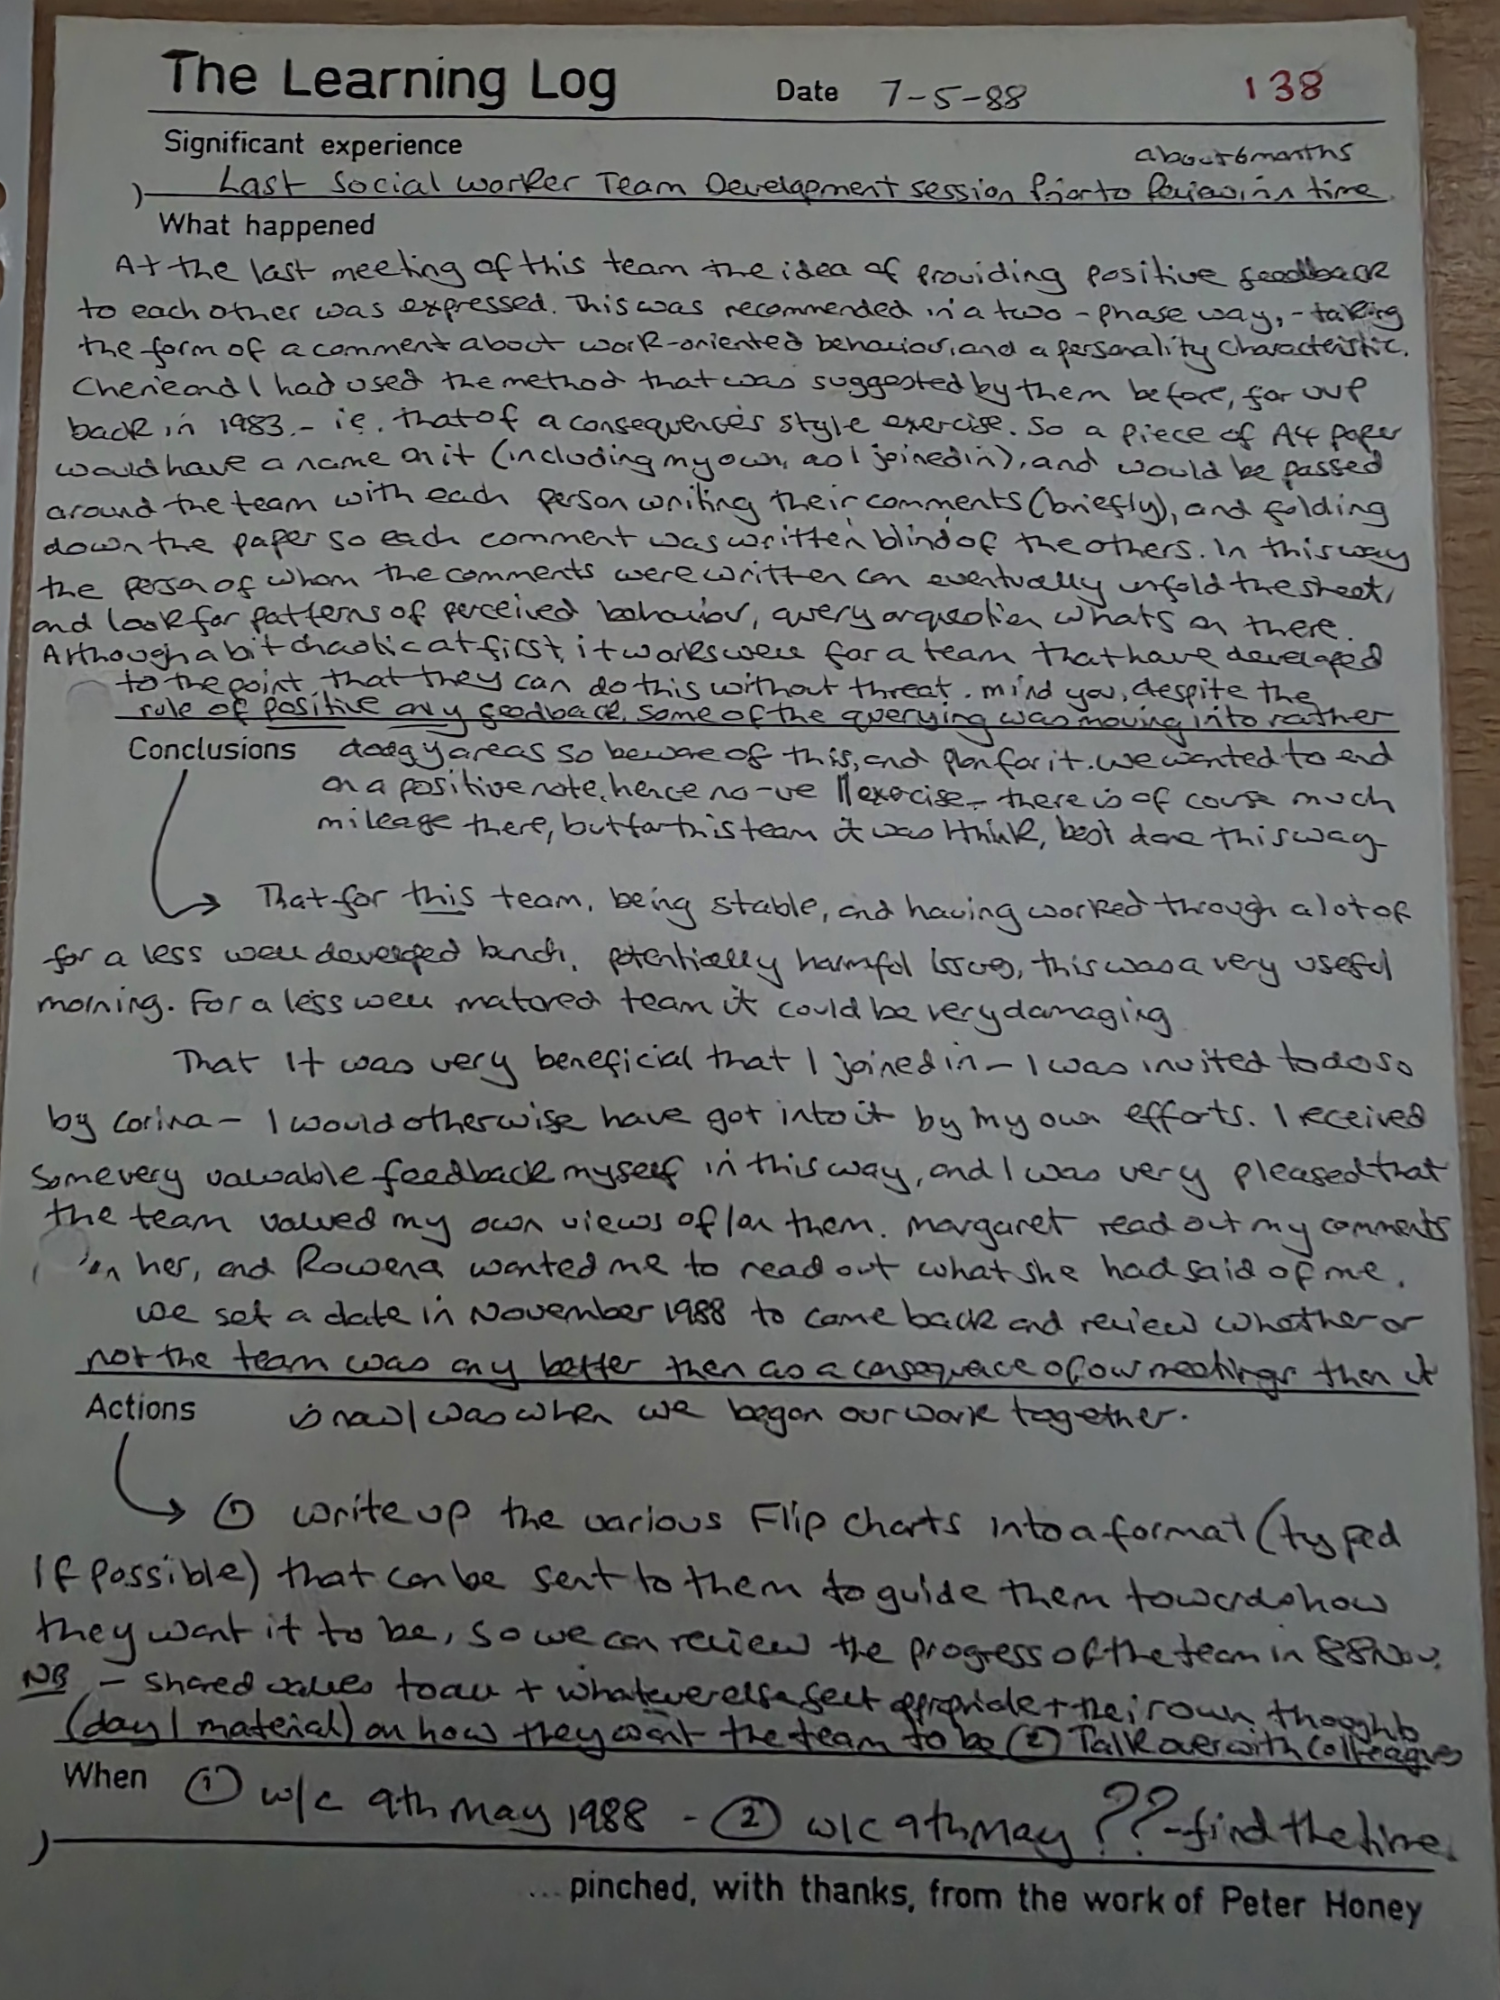 The Learning Log Date 7-5-88 138
Significant experience about 6 months
Last Social Worker Team Development session Prior to Review, in time
What happened
At the last meeting of this team the idea of providing positive feedback
to each other was expressed. This was recommended in a two-phase way, - taking
the form of a comment about work-oriented behaviour, and a personality characteristic.
Cherie and I had used the method that was suggested by them before, for
back in 1983 - ie. that of a consequences style exercise. So a piece of A4 paper
would have a name on it (including my own, as I joined in), and would be passed
around the team with each person writing their comments (briefly), and folding
down the paper so each comment was written blind of the others. In this way
the person of whom the comments were written can eventually unfold the sheet,
and look for patterns of perceived behaviour, query or question whats on there.
Although a bit chaotic at first, it works well for a team that have developed
to the point that they can do this without threat. Mind you, despite the
rule of positive only feedback, some of the querying was moving into rather
Conclusions dodgy areas so beware of this, and plan for it. We wanted to end
on a positive note, hence no -ve || exercise - there is of course much
mileage there, but for this team it was I think, best done this way
That for this team, being stable, and having worked through a lot of
for a less well developed bunch, potentially harmful issues, this was a very useful
morning. For a less well matured team it could be very damaging
That it was very beneficial that I joined in - I was invited to do so
by Corina - I would otherwise have got into it by my own efforts. I received
some very valuable feedback myself in this way, and I was very pleased that
the team valued my own views of/on them. Margaret read out my comments
on her, and Rowena wanted me to read out what she had said of me.
We set a date in November 1988 to come back and review whether or
not the team was any better then as a consequence of our meetings than it
Actions is now/was when we began our work together.
① Write up the various Flip charts into a format (typed
If possible) that can be sent to them to guide them towards how
they want it to be, so we can review the progress of the team in 88 Nov.
NB - shared values to all + whatever else felt appropriate + their own thoughts
(day 1 material) on how they want the team to be ② Talk over with Colleagues
When ① w/c 9th May 1988 - ② w/c 9th May ?? - find the time.
...pinched, with thanks, from the work of Peter Honey